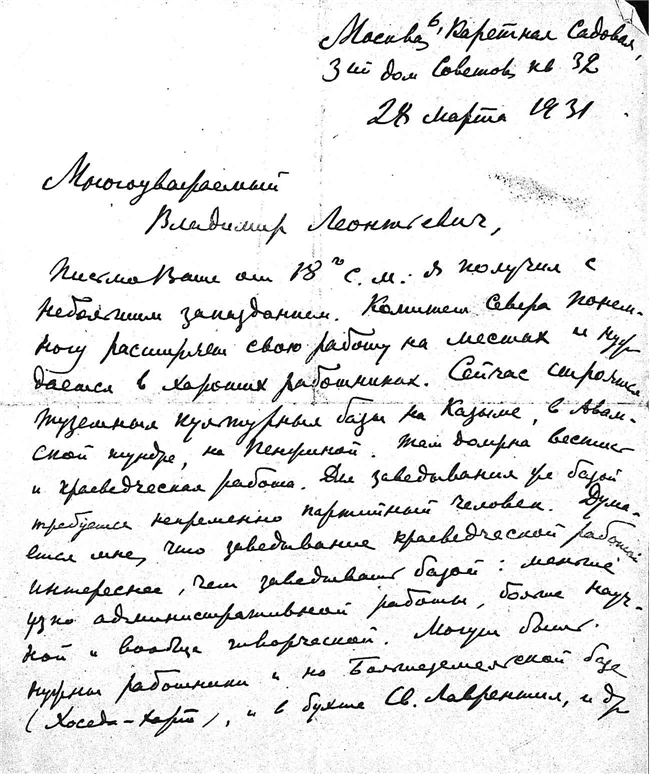 Москва 6, Каретная Садовая,
3й дом Советов, кв 32
28 марта 1931
Многоуважаемый
Владимир Леонтьевич,
Письмо Ваше от 18го с.м. я получил с
небольшим запозданием. Комитет Севера понем-
ногу расширяет свою работу на местах и нуж-
дается в хороших работниках. Сейчас строятся
туземныя культурныя базы на Казыме, в Авам-
ской тундре, на Пенжиной. Там должна вестись
и краеведческая работа. Для заведывания же базой
требуется непременно партийный человек. Дума-
ется мне, что заведывание краеведческой работой
интереснее, чем заведывать базой: меньше
узко административной работы, больше науч-
ной и вообще творческой. Могут быть
нужны работники и на Большеземельской базе
(Хоседа-Хард), и в бухте Св. Лаврентия, и др